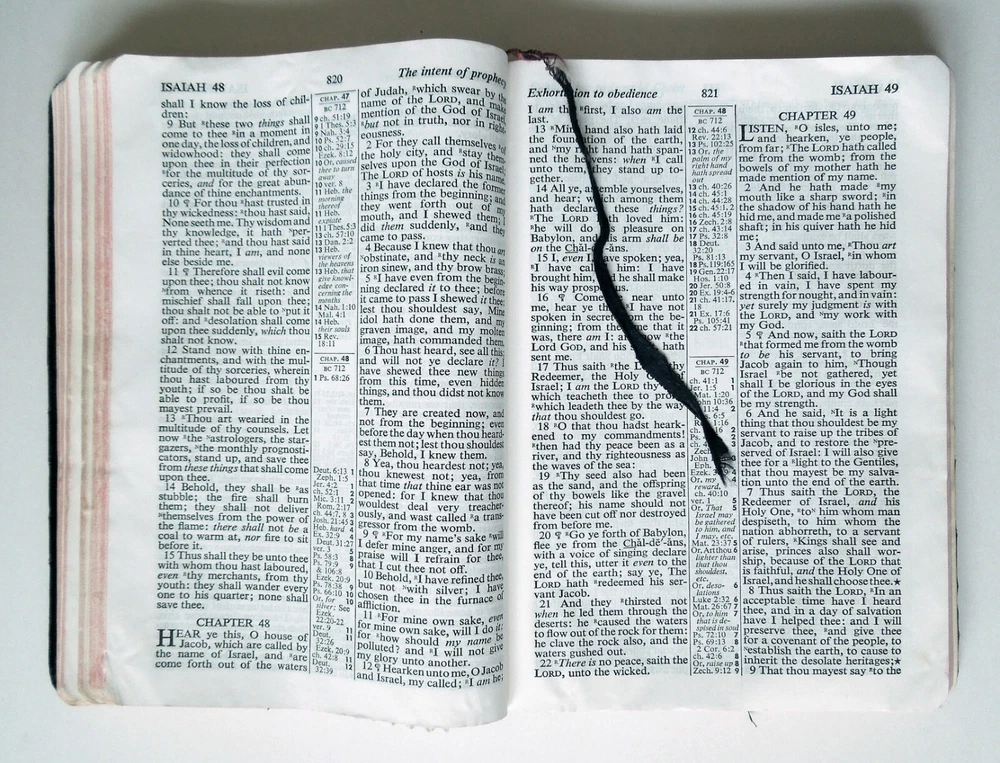 ISAIAH 48
820
The intent of prophecy
shall I know the loss of chil-
dren:
9 But ᴿthese two things shall
come to thee ᴿin a moment in
one day, the loss of children, and
widowhood: they shall come
upon thee in their perfection
ᴿfor the multitude of thy sor-
ceries, and for the great abun-
dance of thine enchantments.
10 ¶ For thou ᴿhast trusted in
thy wickedness: ᴿthou hast said,
None seeth me. Thy wisdom and
thy knowledge, it hath ᴺper-
verted thee; ᴿand thou hast said
in thine heart, I am, and none
else beside me.
11 ¶ Therefore shall evil come
upon thee; thou shalt not know
ᴺfrom whence it riseth: and
mischief shall fall upon thee;
thou shalt not be able to ᴺput it
off: and ᴿdesolation shall come
upon thee suddenly, which thou
shalt not know.
12 Stand now with thine en-
chantments, and with the mul-
titude of thy sorceries, wherein
thou hast laboured from thy
youth; if so be thou shalt be
able to profit, if so be thou
mayest prevail.
13 ᴿThou art wearied in the
multitude of thy counsels. Let
now ᴿthe ᴺastrologers, the star-
gazers, ᴺthe monthly prognosti-
cators, stand up, and save thee
from these things that shall come
upon thee.
14 Behold, they shall be ᴿas
stubble; the fire shall burn
them; they shall not deliver
ᴺthemselves from the power of
the flame: there shall not be a
coal to warm at, nor fire to sit
before it.
15 Thus shall they be unto thee
with whom thou hast laboured,
even ᴿthy merchants, from thy
youth: they shall wander every
one to his quarter; none shall
save thee.
CHAPTER 48
HEAR ye this, O house of
Jacob, which are called by
the name of Israel, and ᴿare
come forth out of the waters
CHAP. 47
BC 712
9 ch. 51:19
9 1 Thes. 5:3
9 Nah. 3:4
10 Ps. 52:7
10 ch. 29:15
Ezek. 8:12
10 Or, caused
thee to turn
away
10 ver. 8
11 Heb. the
morning
thereof
11 Heb.
expiate
11 1 Thes. 5:3
13 ch. 57:10
13 Dan. 2:2
13 Heb.
viewers of
the heavens
13 Heb. that
give knowl-
edge con-
cerning the
months
14 Nah. 1:10
Mal. 4:1
14 Heb.
their souls
15 Rev.
18:11
CHAP. 48
BC 712
1 Ps. 68:26
Deut. 6:13 1
Zeph. 1:5
Jer. 4:2 1
ch. 52:1 2
Mic. 3:11 2
Rom. 2:17
ch. 44:7, 8 3
Josh. 21:45 3
Heb. hard 4
Ex. 32:9 4
Deut. 31:27
ver. 3 5
Ps. 58:3 8
Ps. 79:9 9
& 106:8
Ezek. 20:9
Ps. 78:38 9
Ps. 66:10 10
Or, for 10
silver: See
Ezek.
22:20-22
ver. 9 11
Deut. 11
32:26
Ezek. 20:9
ch. 42:8 11
Deut. 12
32:39
of Judah, ᴿwhich swear by the
name of the LORD, and make
mention of the God of Israel,
ᴿbut not in truth, nor in right-
eousness.
2 For they call themselves ᴿof
the holy city, and ᴿstay them-
selves upon the God of Israel;
The LORD of hosts is his name.
3 ᴿI have declared the former
things from the beginning; and
they went forth out of my
mouth, and I shewed them; I
did them suddenly, ᴿand they
came to pass.
4 Because I knew that thou art
ᴺobstinate, and ᴿthy neck is an
iron sinew, and thy brow brass;
5 ᴿI have even from the begin-
ning declared it to thee; before
it came to pass I shewed it thee:
lest thou shouldest say, Mine
idol hath done them, and my
graven image, and my molten
image, hath commanded them.
6 Thou hast heard, see all this;
and will not ye declare it? I
have shewed thee new things
from this time, even hidden
things, and thou didst not know
them.
7 They are created now, and
not from the beginning; even
before the day when thou heard-
est them not; lest thou shouldest
say, Behold, I knew them.
8 Yea, thou heardest not; yea,
thou knewest not; yea, from
that time that thine ear was not
opened: for I knew that thou
wouldest deal very treacher-
ously, and wast called ᴿa trans-
gressor from the womb.
9 ¶ ᴿFor my name's sake ᴿwill
I defer mine anger, and for my
praise will I refrain for thee,
that I cut thee not off.
10 Behold, ᴿI have refined thee,
but not ᴺwith silver; I have
chosen thee in the furnace of
affliction.
11 ᴿFor mine own sake, even
for mine own sake, will I do it:
for ᴿhow should my name be
polluted? and ᴿI will not give
my glory unto another.
12 ¶ Hearken unto me, O Jacob
and Israel, my called; ᴿI am he;
Exhortation to obedience
821
ISAIAH 49
I am the ᴿfirst, I also am the
last.
13 ᴿMine hand also hath laid
the foundation of the earth,
and ᴺmy right hand hath span-
ned the heavens: when ᴿI call
unto them, they stand up to-
gether.
14 All ye, assemble yourselves,
and hear; which among them
hath declared these things?
ᴿThe LORD hath loved him:
ᴿhe will do his pleasure on
Babylon, and his arm shall be
on the Chăl-dē-ăns.
15 I, even I, have spoken; yea,
ᴿI have called him: I have
brought him, and he shall make
his way prosperous.
16 ¶ Come ye near unto
me, hear ye this; ᴿI have not
spoken in secret from the be-
ginning; from the time that it
was, there am I: and now ᴿthe
Lord GOD, and his Spirit, hath
sent me.
17 Thus saith ᴿthe LORD, thy
Redeemer, the Holy One of
Israel; I am the LORD thy God
which teacheth thee to profit,
ᴿwhich leadeth thee by the way
that thou shouldest go.
18 ᴿO that thou hadst heark-
ened to my commandments!
ᴿthen had thy peace been as a
river, and thy righteousness as
the waves of the sea:
19 ᴿThy seed also had been
as the sand, and the offspring
of thy bowels like the gravel
thereof; his name should not
have been cut off nor destroyed
from before me.
20 ¶ ᴿGo ye forth of Babylon,
flee ye from the Chăl-dē'-ăns,
with a voice of singing declare
ye, tell this, utter it even to the
end of the earth; say ye, The
LORD hath ᴿredeemed his ser-
vant Jacob.
21 And they ᴿthirsted not
when he led them through the
deserts: he ᴿcaused the waters
to flow out of the rock for them:
he clave the rock also, and the
waters gushed out.
22 ᴿThere is no peace, saith the
LORD, unto the wicked.
CHAP. 48
BC 712
12 ch. 44:6
Rev. 22:13
13 Ps. 102:25
13 Or, the
palm of my
right hand
hath spread
out
13 ch. 40:26
14 ch. 45:1
14 ch. 44:28
15 ch. 45:1, 2
16 ch. 45:19
16 Zech. 2:8
17 ch. 43:14
17 Ps. 32:8
18 Deut.
32:20
Ps. 81:13
18 Ps. 119:165
19 Gen. 22:17
Hos. 1:10
20 Jer. 50:8
20 Ex. 19:4-6
21 ch. 41:17,
18
21 Ex. 17:6
Ps. 105:41
22 ch. 57:21
CHAP. 49
BC 712
ch. 41:1 1
Jer. 1:5 1
Mat. 1:20
John 10:36
Or, my
reward,
ch. 40:10
ver. 1 5
Or, That 5
Israel may
be gathered
to him, and
I may, etc.
Mat. 23:37 5
Or, Art thou 6
lighter than
that thou
shouldest,
etc.
Or, deso- 6
lations
Luke 2:32 6
Mat. 26:67 7
Or, to him 7
that is de-
spised in soul
Ps. 72:10 7
Ps. 69:13 8
2 Cor. 6:2
ch. 42:6 8
Or, raise up 8
Zech. 9:12 9
CHAPTER 49
LISTEN, ᴿO isles, unto me;
and hearken, ye people,
from far; ᴿThe LORD hath called
me from the womb; from the
bowels of my mother hath he
made mention of my name.
2 And he hath made ᴿmy
mouth like a sharp sword; ᴿin
the shadow of his hand hath he
hid me, and made me ᴿa polished
shaft; in his quiver hath he hid
me;
3 And said unto me, ᴿThou art
my servant, O Israel, ᴿin whom
I will be glorified.
4 ᴿThen I said, I have labour-
ed in vain, I have spent my
strength for nought, and in vain:
yet surely my judgment is with
the LORD, and ᴺmy work with
my God.
5 ¶ And now, saith the LORD
ᴿthat formed me from the womb
to be his servant, to bring
Jacob again to him, ᴺThough
Israel ᴿbe not gathered, yet
shall I be glorious in the eyes
of the LORD, and my God shall
be my strength.
6 And he said, ᴺIt is a light
thing that thou shouldest be my
servant to raise up the tribes of
Jacob, and to restore the ᴺpre-
served of Israel: I will also give
thee for a ᴿlight to the Gentiles,
that thou mayest be my salva-
tion unto the end of the earth.
7 Thus saith the LORD, the
Redeemer of Israel, and his
Holy One, ᴿto ᴺhim whom man
despiseth, to him whom the
nation abhorreth, to a servant
of rulers, ᴿKings shall see and
arise, princes also shall wor-
ship, because of the LORD that
is faithful, and the Holy One of
Israel, and he shall choose thee.★
8 Thus saith the LORD, ᴿIn an
acceptable time have I heard
thee, and in a day of salvation
have I helped thee: and I will
preserve thee, ᴿand give thee
for a covenant of the people, to
ᴺestablish the earth, to cause to
inherit the desolate heritages;★
9 That thou mayest say ᴿto the